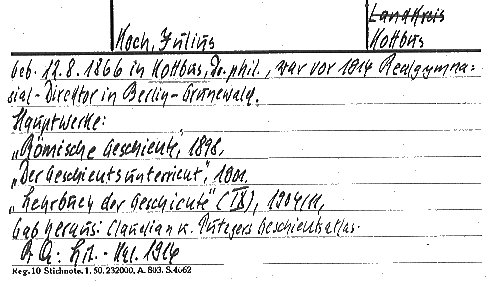 Landkreis
Koch, Julius
Kottbus
geb. 12.8.1866 in Kottbus, Dr. phil., war vor 1914 Realgymna-
sial-Direktor in Berlin-Grunewald.
Hauptwerke:
„Römische Geschichte, 1898,
„Der Geschichtsunterricht", 1901.
„Lehrbuch der Geschichte" (IX), 1904/11,
Gab heraus: Claudian u. Putzgers Geschichtsatlas.
Lit.-Kal. 1914
Reg. 10 Stichnote. 1. 50. 232000. A. 803. S. 4062